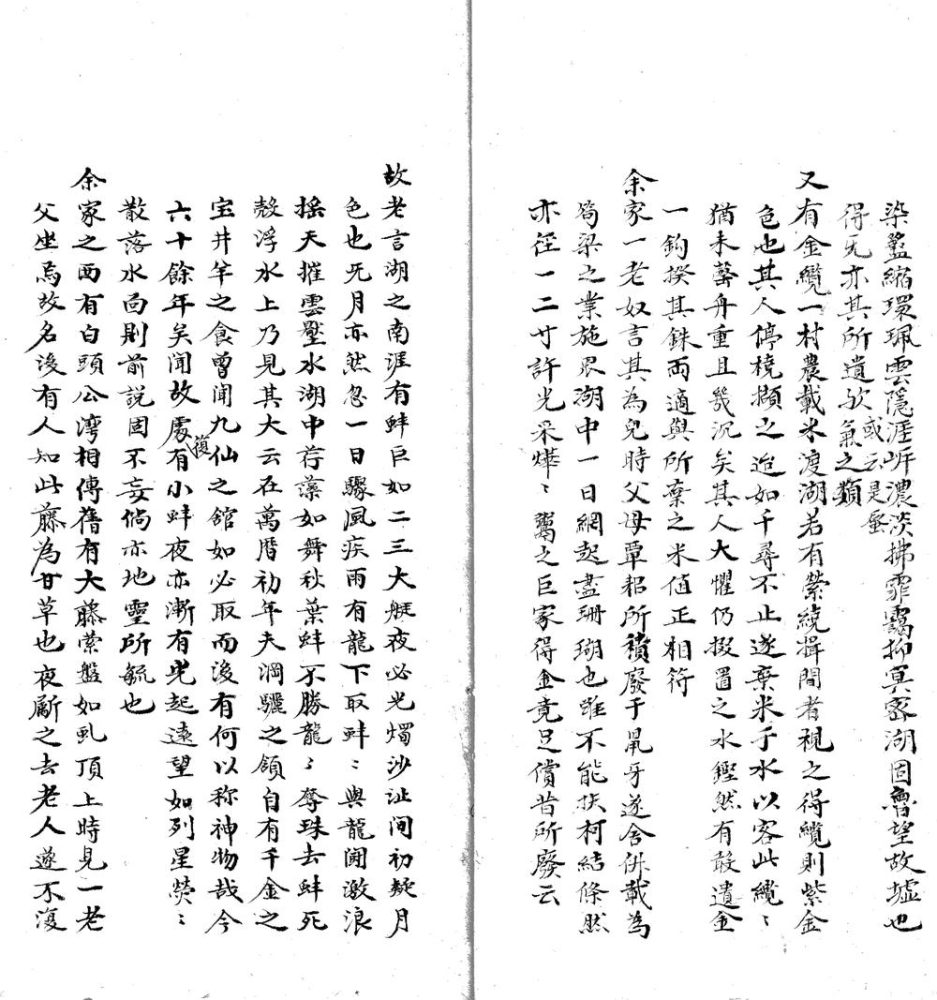 染藍縮環珮雲隱涯岓濃淡拂霏靄抑冥密湖固魯望故墟也
得旡亦其所遺欤氣之類
或云是蜃
又有金纜一村農載米渡湖若有縈繞揖間者視之得纜則紫金
色也其人停橈擷之迨如千尋不止遂棄米于水以容此纜〻
猶未罄舟重且幾沉矣其人大懼仍掇置之水鏗然有敢遺金
一鈎揆其銖两適與所棄之米值正相符
余家一老奴言其為兒時父母覃耜所積廢于鼡牙遂舍佛載為
笱梁之業施罛湖中一日網起盡珊瑚也雖不能扶柯結條然
亦徑一二寸許光采燁〻鬻之巨家得金竟足償昔所廢云
故老言湖之南涯有蚌巨如二三大艇夜必光燭沙沚间初疑月
色也旡月亦然忽一日驟風疾雨有龍下取蚌〻與龍鬨激浪
搖天摧雲壓水湖中荇藻如舞秋葉蚌不勝龍〻奪珠去蚌死
殼浮水上乃見其大云在萬曆初年夫淵驪之頷自有千金之
宝井竿之食曾闻九仙之舘如必取而後有何以称神物哉今
六十餘年矣闻故處復有小蚌夜亦漸有光起遠望如列星熒〻
散落水面則前説固不妄倘亦地靈所毓也
余家之西有白頭公湾相傳舊有大藤縈盤如虬頂上時見一老
父坐焉故名後有人知此藤為甘草也夜斸之去老人遂不復